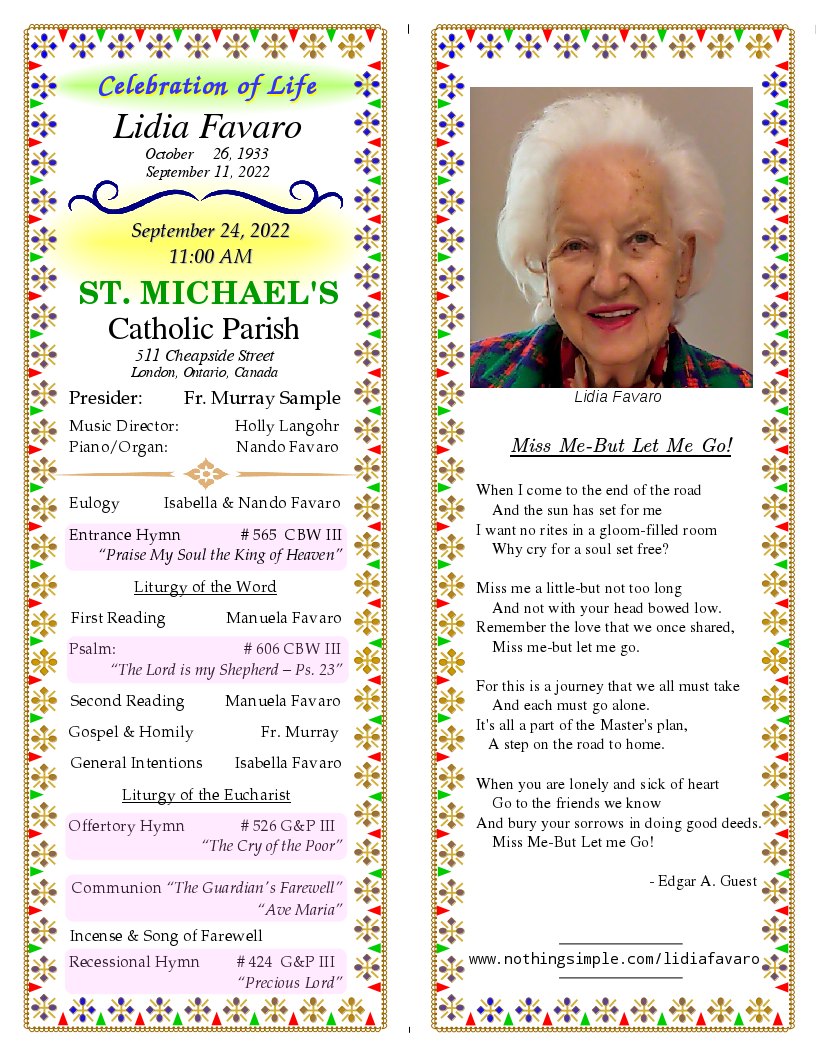 Celebration of Life
Lidia Favaro
October 26, 1933
September 11, 2022
September 24, 2022
11:00 AM
ST. MICHAEL'S
Catholic Parish
511 Cheapside Street
London, Ontario, Canada
Presider: Fr. Murray Sample
Music Director: Holly Langohr
Piano/Organ: Nando Favaro
Eulogy Isabella & Nando Favaro
Entrance Hymn # 565 CBW III
“Praise My Soul the King of Heaven”
Liturgy of the Word
First Reading Manuela Favaro
Psalm: # 606 CBW III
“The Lord is my Shepherd – Ps. 23”
Second Reading Manuela Favaro
Gospel & Homily Fr. Murray
General Intentions Isabella Favaro
Liturgy of the Eucharist
Offertory Hymn # 526 G&P III
“The Cry of the Poor”
Communion “The Guardian's Farewell”
“Ave Maria”
Incense & Song of Farewell
Recessional Hymn # 424 G&P III
“Precious Lord”
Lidia Favaro
Miss Me-But Let Me Go!
When I come to the end of the road
And the sun has set for me
I want no rites in a gloom-filled room
Why cry for a soul set free?
Miss me a little-but not too long
And not with your head bowed low.
Remember the love that we once shared,
Miss me-but let me go.
For this is a journey that we all must take
And each must go alone.
It's all a part of the Master's plan,
A step on the road to home.
When you are lonely and sick of heart
Go to the friends we know
And bury your sorrows in doing good deeds.
Miss Me-But Let me Go!
- Edgar A. Guest
www.nothingsimple.com/lidiafavaro